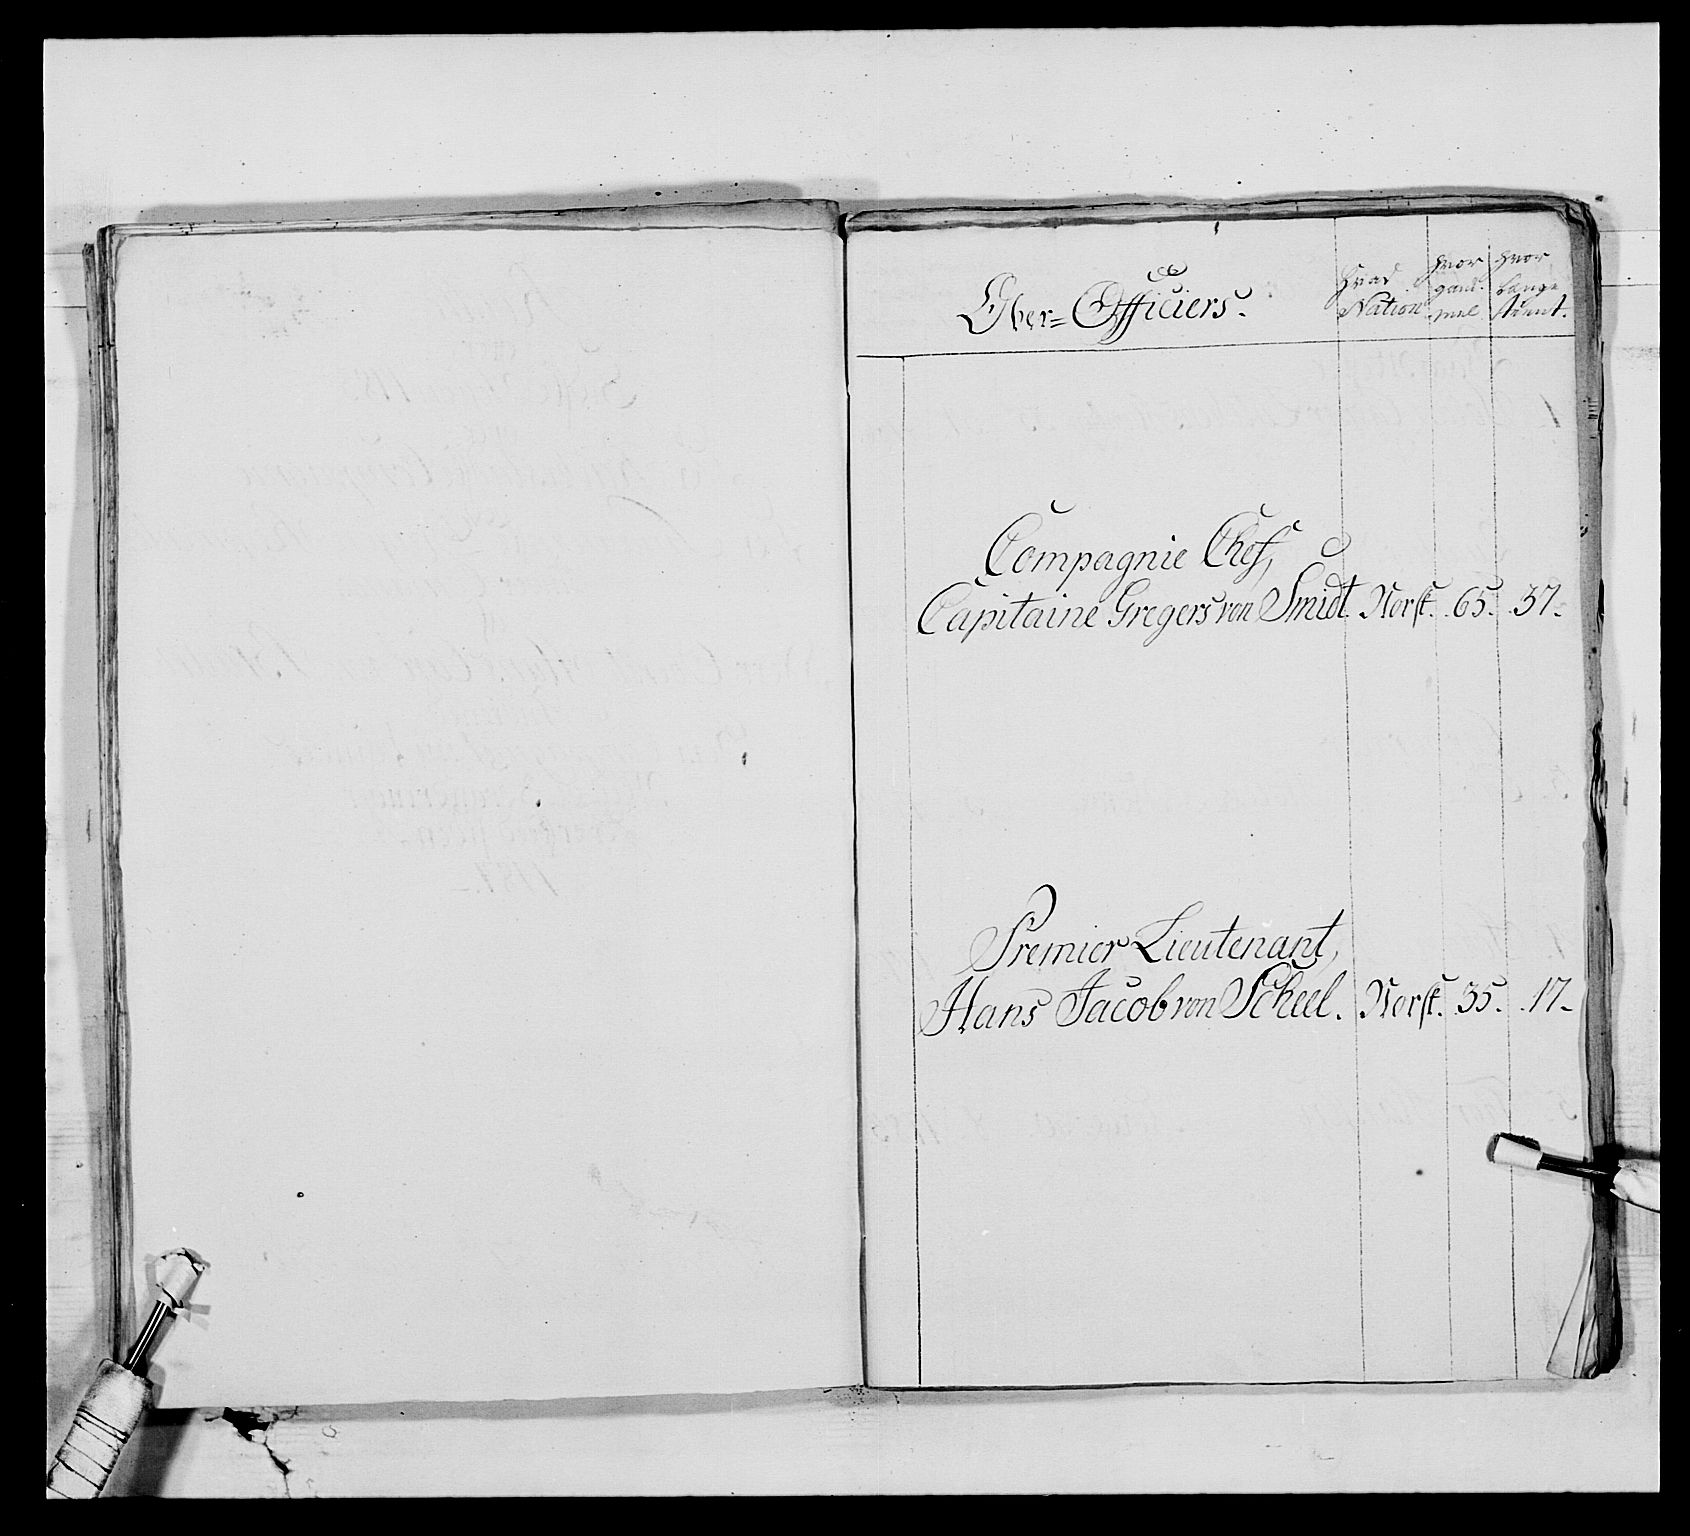 Ober=Officiers.
Hvad Nation
hvor gam- mel
hvor længe tient.
Compagnie Chef,
Capitaine Gregers von Smidt. Norsk. 65. 37.
Premier Lieutenant,
Hans Jacob von Scheel. Norsk. 35. 17.